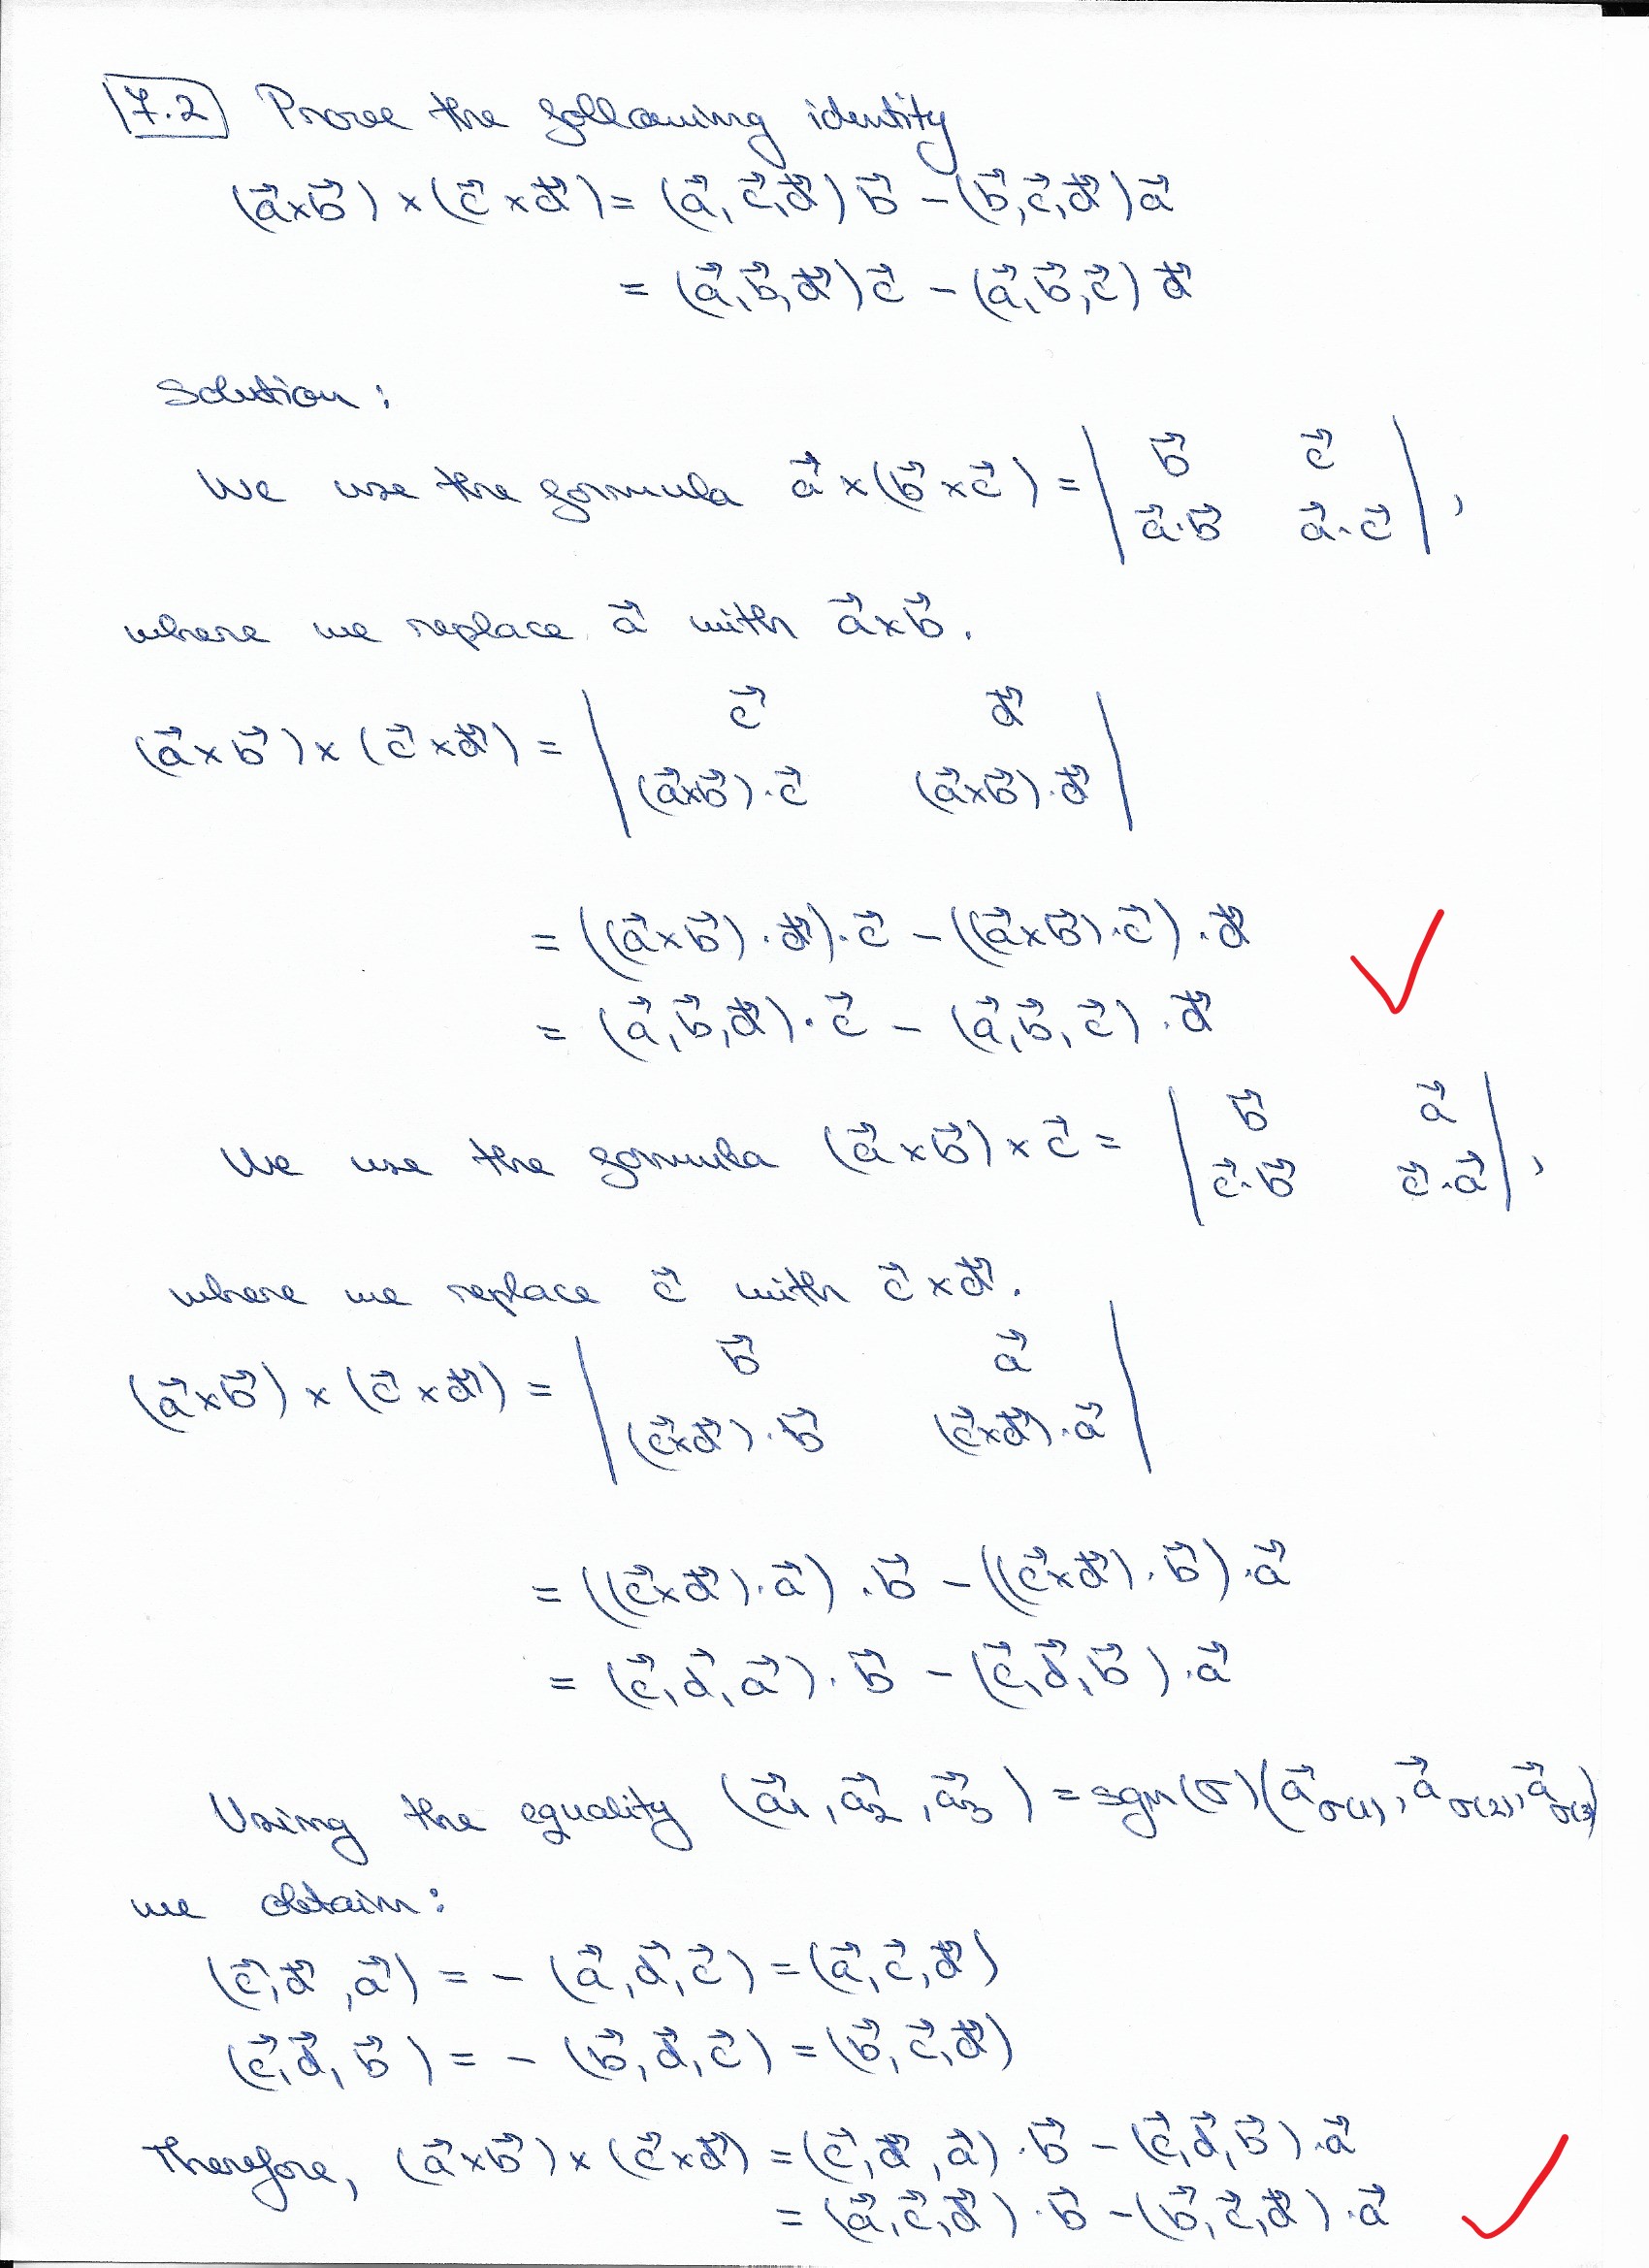 7.2 Prove the following identity
(a⃗×b⃗)×(c⃗×d⃗)=(a⃗,c⃗,d⃗)b⃗-(b⃗,c⃗,d⃗)a⃗
=(a⃗,b⃗,d⃗)c⃗-(a⃗,b⃗,c⃗)d⃗
Solution:
We use the formula a⃗×(b⃗×c⃗)=| b⃗ c⃗ ; a⃗·b⃗ a⃗·c⃗ |,
where we replace a⃗ with a⃗×b⃗.
(a⃗×b⃗)×(c⃗×d⃗)=| c⃗ d⃗ ; (a⃗×b⃗)·c⃗ (a⃗×b⃗)·d⃗ |
=((a⃗×b⃗)·d⃗)·c⃗-((a⃗×b⃗)·c⃗)·d⃗
=(a⃗,b⃗,d⃗)·c⃗-(a⃗,b⃗,c⃗)·d⃗
We use the formula (a⃗×b⃗)×c⃗=| b⃗ a⃗ ; c⃗·b⃗ c⃗·a⃗ |,
where we replace c⃗ with c⃗×d⃗.
(a⃗×b⃗)×(c⃗×d⃗)=| b⃗ a⃗ ; (c⃗×d⃗)·b⃗ (c⃗×d⃗)·a⃗ |
=((c⃗×d⃗)·a⃗)·b⃗-((c⃗×d⃗)·b⃗)·a⃗
=(c⃗,d⃗,a⃗)·b⃗-(c⃗,d⃗,b⃗)·a⃗
Using the equality (a⃗1,a⃗2,a⃗3)=sgn(σ)(a⃗σ(1),a⃗σ(2),a⃗σ(3))
we obtain:
(c⃗,d⃗,a⃗)=-(a⃗,d⃗,c⃗)=(a⃗,c⃗,d⃗)
(c⃗,d⃗,b⃗)=-(b⃗,d⃗,c⃗)=(b⃗,c⃗,d⃗)
Therefore, (a⃗×b⃗)×(c⃗×d⃗)=(c⃗,d⃗,a⃗)·b⃗-(c⃗,d⃗,b⃗)·a⃗
=(a⃗,c⃗,d⃗)·b⃗-(b⃗,c⃗,d⃗)·a⃗